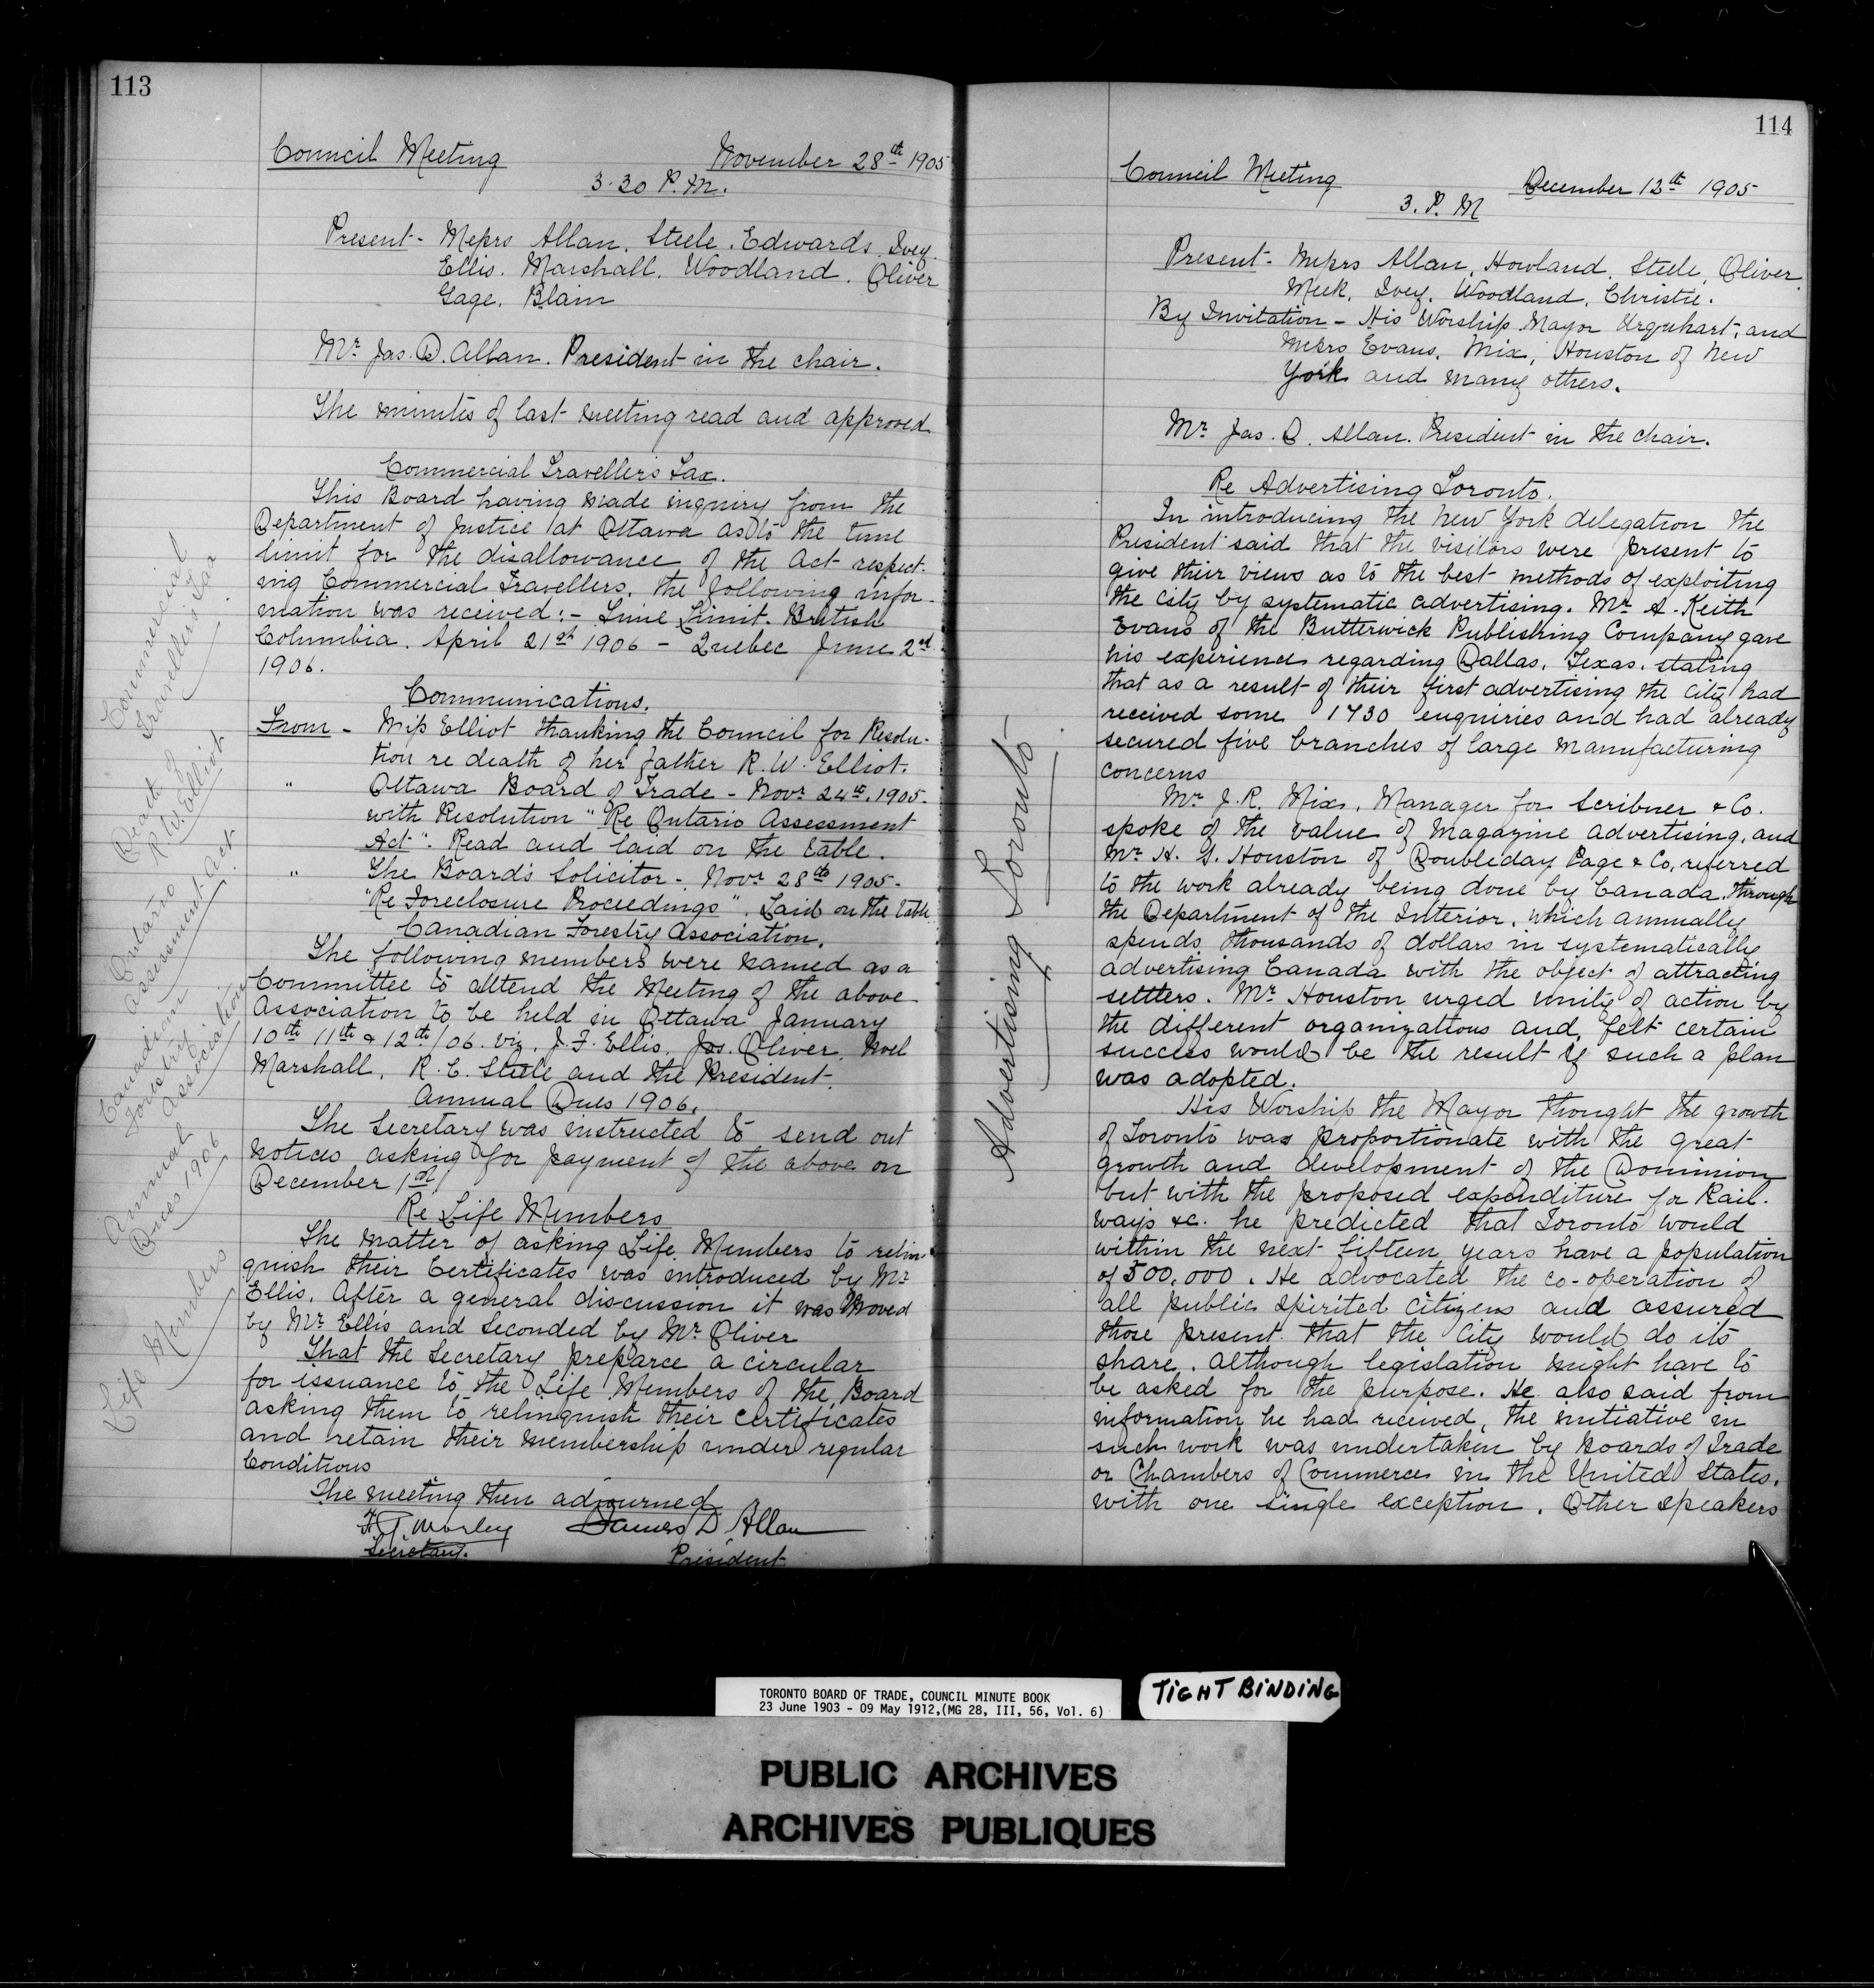 113
Council Meeting November 28th 1905
3.30 P.M.
Present - Messrs Allan. Steele. Edwards. Ivey.
Ellis. Marshall. Woodland. Oliver
Gage. Blain
Mr Jas. D. Allan. President in the chair.
The minutes of last meeting read and approved
Commercial Travellers Tax.
This Board having made inquiry from the
Department of Justice at Ottawa as to the time
limit for the disallowance of the Act respect-
ing Commercial Travellers. the following infor-
mation was received:- Time Limit. British
Columbia. April 21st 1906 - Quebec June 2nd
1906.
Communications.
From - Miss Elliot thanking the Council for Resolu-
tion re death of her father R.W. Elliot.
" Ottawa Board of Trade - Novr 24th. 1905.
with Resolution "Re Ontario Assessment
Act". Read and laid on the table.
" The Boards Solicitor - Novr 28th 1905.
"Re Foreclosure Proceedings". Laid on the table
Canadian Forestry Association.
The following members were named as a
Committee to attend the Meeting of the above
Association to be held in Ottawa January
10th 11th & 12th/06. viz. J.F. Ellis. Jas. Oliver, Noel
Marshall, R.C. Steele and the President.
Annual Dues 1906.
The Secretary was instructed to send out
notices asking for payment of the above on
December 1st/
Re Life Members
The matter of asking Life Members to relin-
quish their Certificates was introduced by Mr
Ellis. After a general discussion it was Moved
by Mr Ellis and Seconded by Mr Oliver
That the Secretary preparce a circular
for issuance to the Life Members of the Board
asking them to relinquish their certificates
and retain their membership under regular
Conditions
The meeting then adjourned
F.G. Morley James D. Allan
Secretary. President
Commercial
Traveller's Tax
Death of
R.W. Elliot
Ontario
Assessment Act
Canadian
Forestry
Association
Annual
Dues 1906
Life Members
114
Council Meeting December 12th 1905
3. P. M
Present - Messrs Allan, Howland, Steele, Oliver.
Meek, Ivey, Woodland, Christie.
By Invitation - His Worship Mayor Urquhart, and
Messrs Evans, Mix, Houston of New
York and many others.
Mr Jas. D. Allan. President in the chair.
Re Advertising Toronto.
In introducing the New York delegation the
President said that the visitors were present to
give their views as to the best methods of exploiting
the City by systematic advertising. Mr A. Keith
Evans of the Butterwick Publishing Company gave
his experience regarding Dallas, Texas. stating
that as a result of their first advertising the City had
received some 1730 enquiries and had already
secured five branches of large manufacturing
concerns
Mr J.R. Mix, Manager for Scribner & Co.
spoke of the value of Magazine advertising, and
Mr H. S. Houston of Doubleday Page & Co, referred
to the work already being done by Canada, through
the Department of the Interior, which annually
spends thousands of dollars in systematically
advertising Canada with the object of attracting
settlers. Mr Houston urged unity of action by
the different organizations and felt certain
success would be the result if such a plan
was adopted.
His Worship the Mayor thought the growth
of Toronto was proportionate with the great
growth and development of the Dominion
but with the proposed expenditure for Rail-
ways &c. he predicted that Toronto would
within the next fifteen years have a population
of 500,000. He advocated the co-operation of
all public spirited citizens and assured
those present that the City would do its
share. Although legislation might have to
be asked for the purpose. He also said from
information he had received, the initiative in
such work was undertaken by Boards of Trade
or Chambers of Commerce in the United States,
with one single exception. Other speakers
Advertising Toronto
TORONTO BOARD OF TRADE, COUNCIL MINUTE BOOK
23 June 1903 - 09 May 1912,(MG 28, III, 56, Vol. 6)
TIGHT BINDING
PUBLIC ARCHIVES
ARCHIVES PUBLIQUES